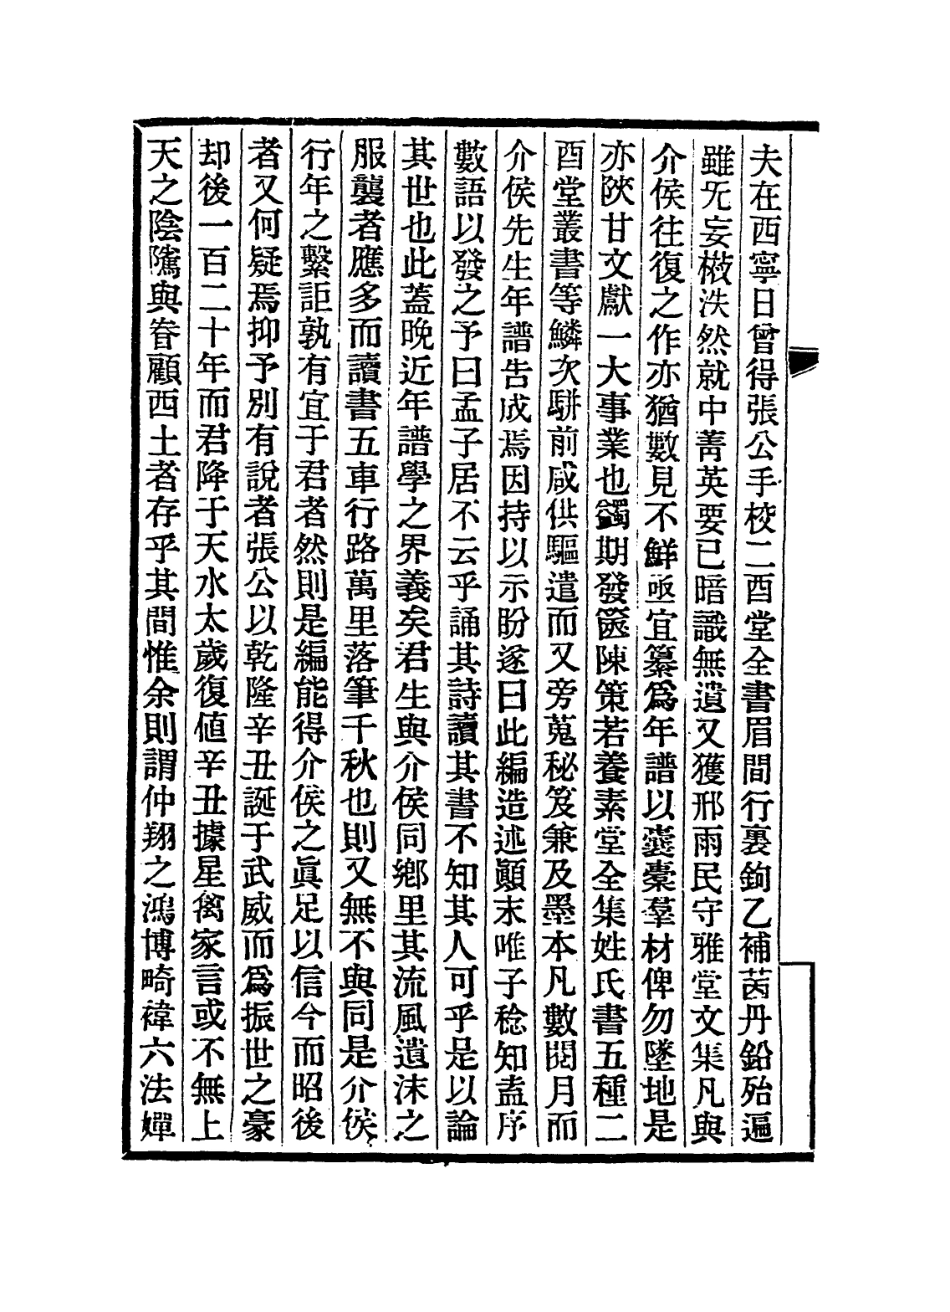 夫在西寧日曾得張公手校二酉堂全書眉間行裏鉤乙補茵丹鉛殆遍
雖旡妄㩻泆然就中菁英要已暗識無遺又獲邢雨民守雅堂文集凡與
介侯往復之作亦猶數見不鮮亟宜纂爲年譜以囊橐羣材俾勿墜地是
亦陝甘文獻一大事業也蠲期發篋陳策若養素堂全集姓氏書五種二
酉堂叢書等鱗次駢前咸供驅遣而又旁蒐秘笈兼及墨本凡數閱月而
介侯先生年譜告成焉因持以示盼遂曰此編造述顚末唯子稔知盍序
數語以發之予曰孟子居不云乎誦其詩讀其書不知其人可乎是以論
其世也此蓋晚近年譜學之界義矣君生與介侯同鄉里其流風遺沫之
服襲者應多而讀書五車行路萬里落筆千秋也則又無不與同是介侯
行年之繫詎孰有宜于君者然則是編能得介侯之眞足以信今而昭後
者又何疑焉抑予別有說者張公以乾隆辛丑誕于武威而爲振世之豪
却後一百二十年而君降于天水太歲復値辛丑據星禽家言或不無上
天之陰隲與眷顧西土者存乎其間惟余則謂仲翔之鴻博畸禕六法嬋